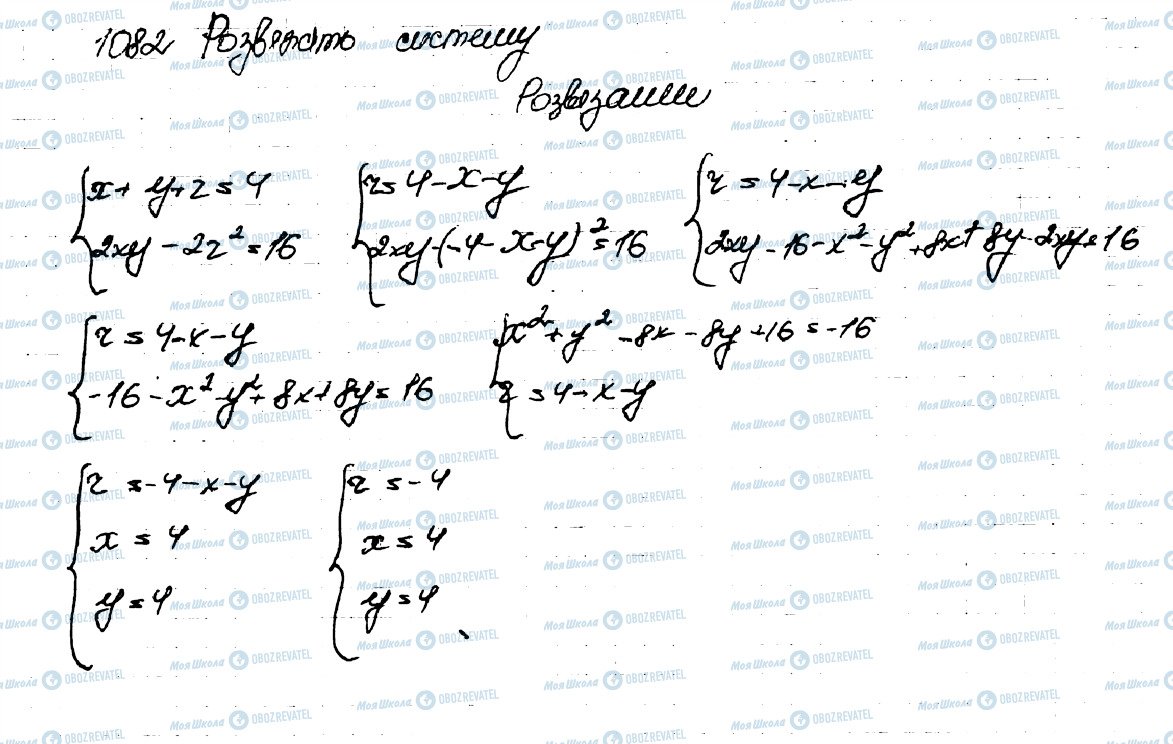 1082 Розвязать систему
Розвязании
{ x + y + z = 4
2xy - 2z² = 16
{ z = 4 - x - y
2xy - (-4 - x - y)² = 16
{ z = 4 - x - y
2xy - 16 - x² - y² + 8x + 8y - 2xy = 16
{ z = 4 - x - y
-16 - x² - y² + 8x + 8y = 16
{ x² + y² - 8x - 8y + 16 = -16
z = 4 - x - y
{ z = -4 - x - y
x = 4
y = 4
{ z = -4
x = 4
y = 4
МояШкола OBOZREVATEL